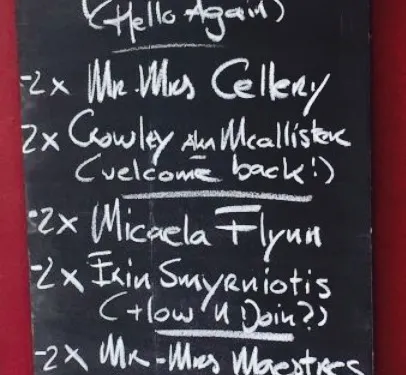 (Hello Again)
-2x Mr. Mrs Cellery
2x Crowley Ann Mcallister
(velcome back!)
-2x Micaela Flynn
-2x Erin Smyrniotis
(How U Doin?)
-2x Mr-Mrs Maestres